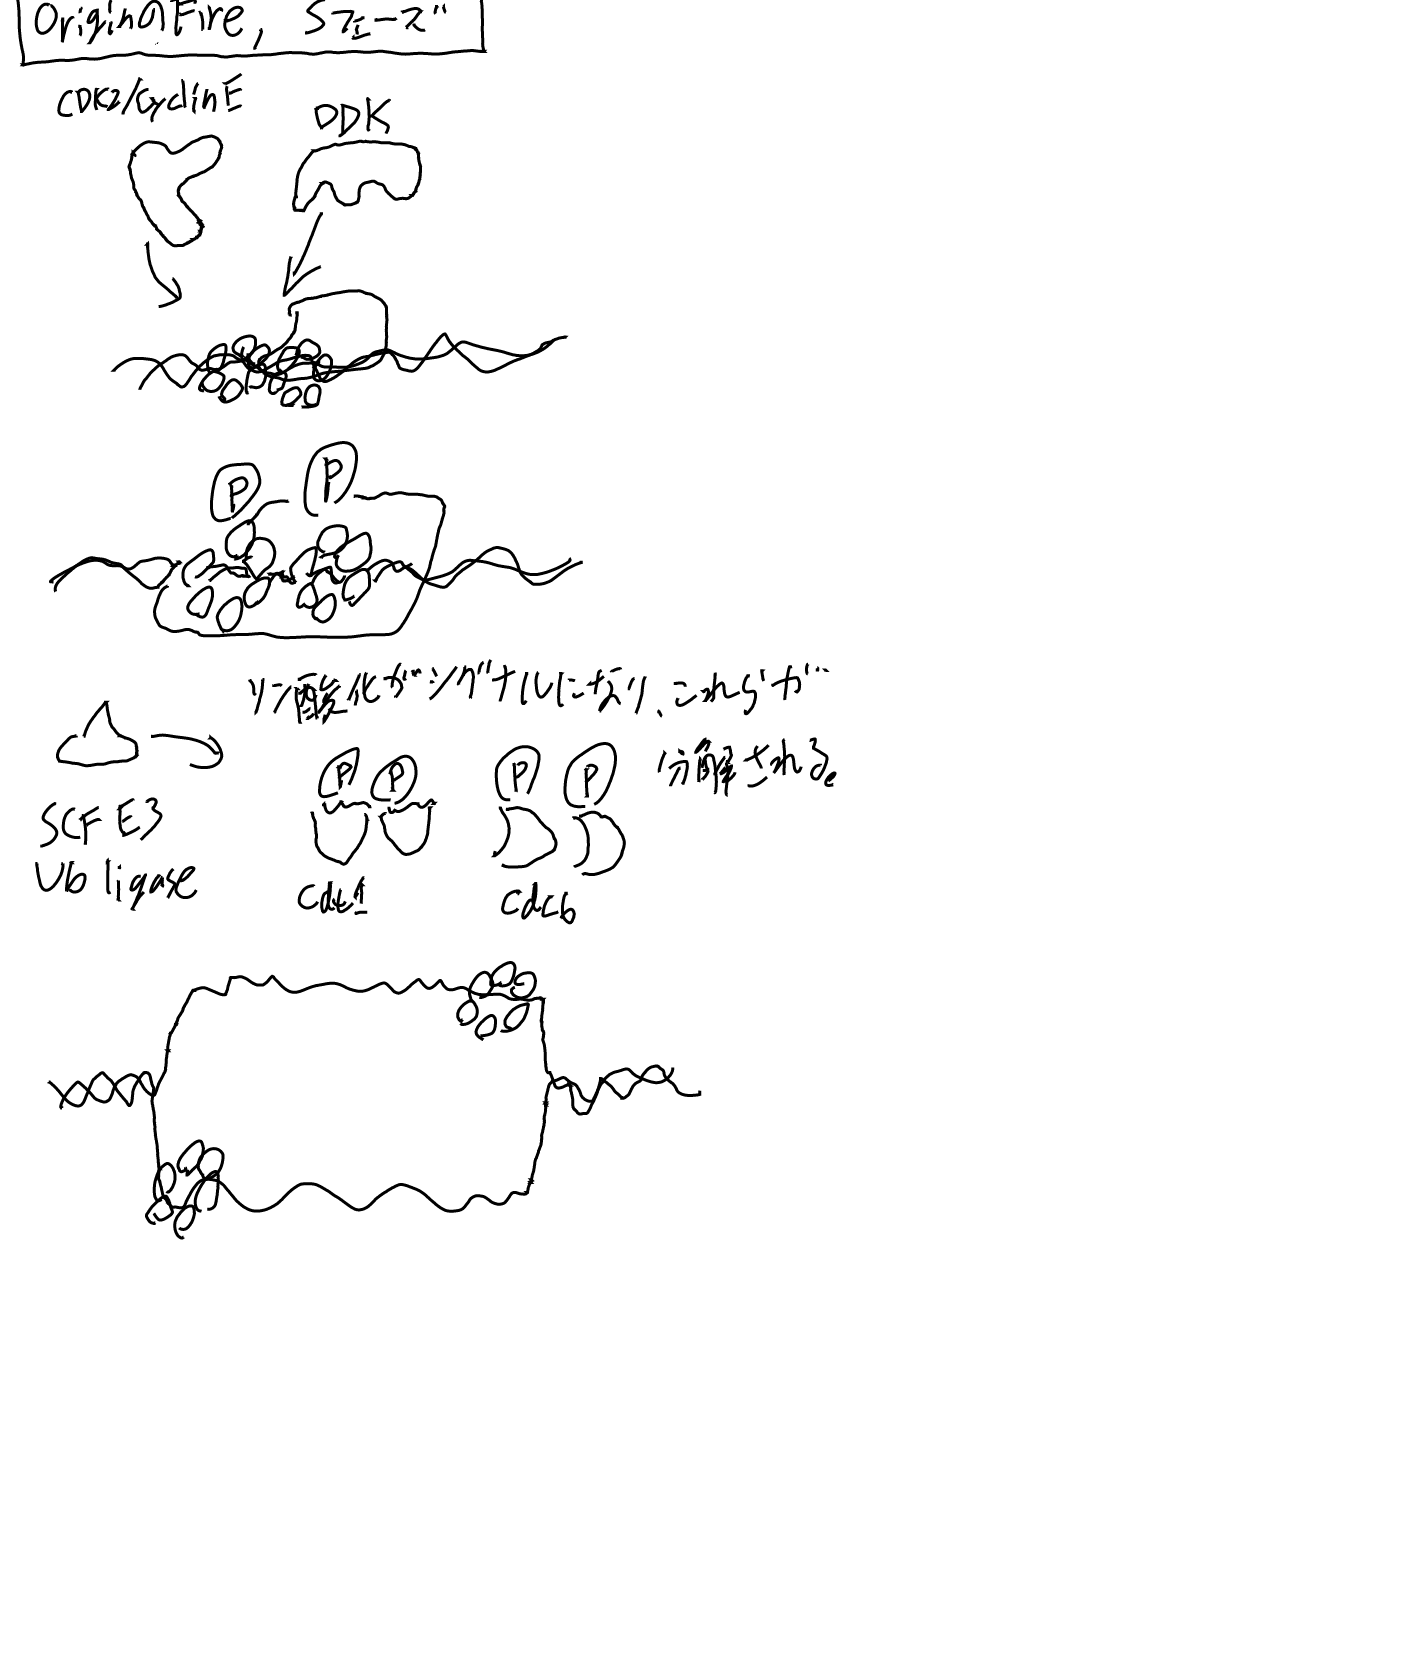 OriginのFire, Sフェーズ
CDK2/CyclinE
DDK
P P
リン酸化がシグナルになり、これらが
分解される。
P P P P
SCF E3
Ub ligase
Cdt1
Cdc6